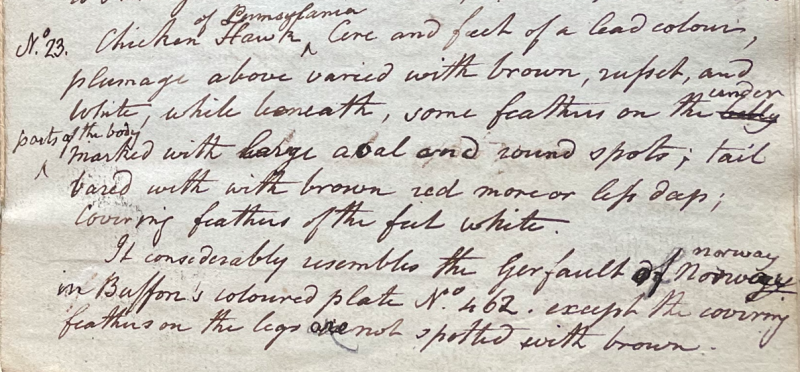 of Pennsylvania
N.o 23. Chicken Hawk ^ Cere and feet of a lead colour,
plumage above varied with brown, russet, and
White, while beneath, some feathers on the under belly
parts of the body
^ marked with large aoval and round spots; tail
bared with with brown red more or less dap;
Covering feathers of the feet white.
It considerably resembles the Gerfault of Norway norway
in Buffon's coloured plate N.o 462. except the covering
feathers on the legs are not spotted with brown.